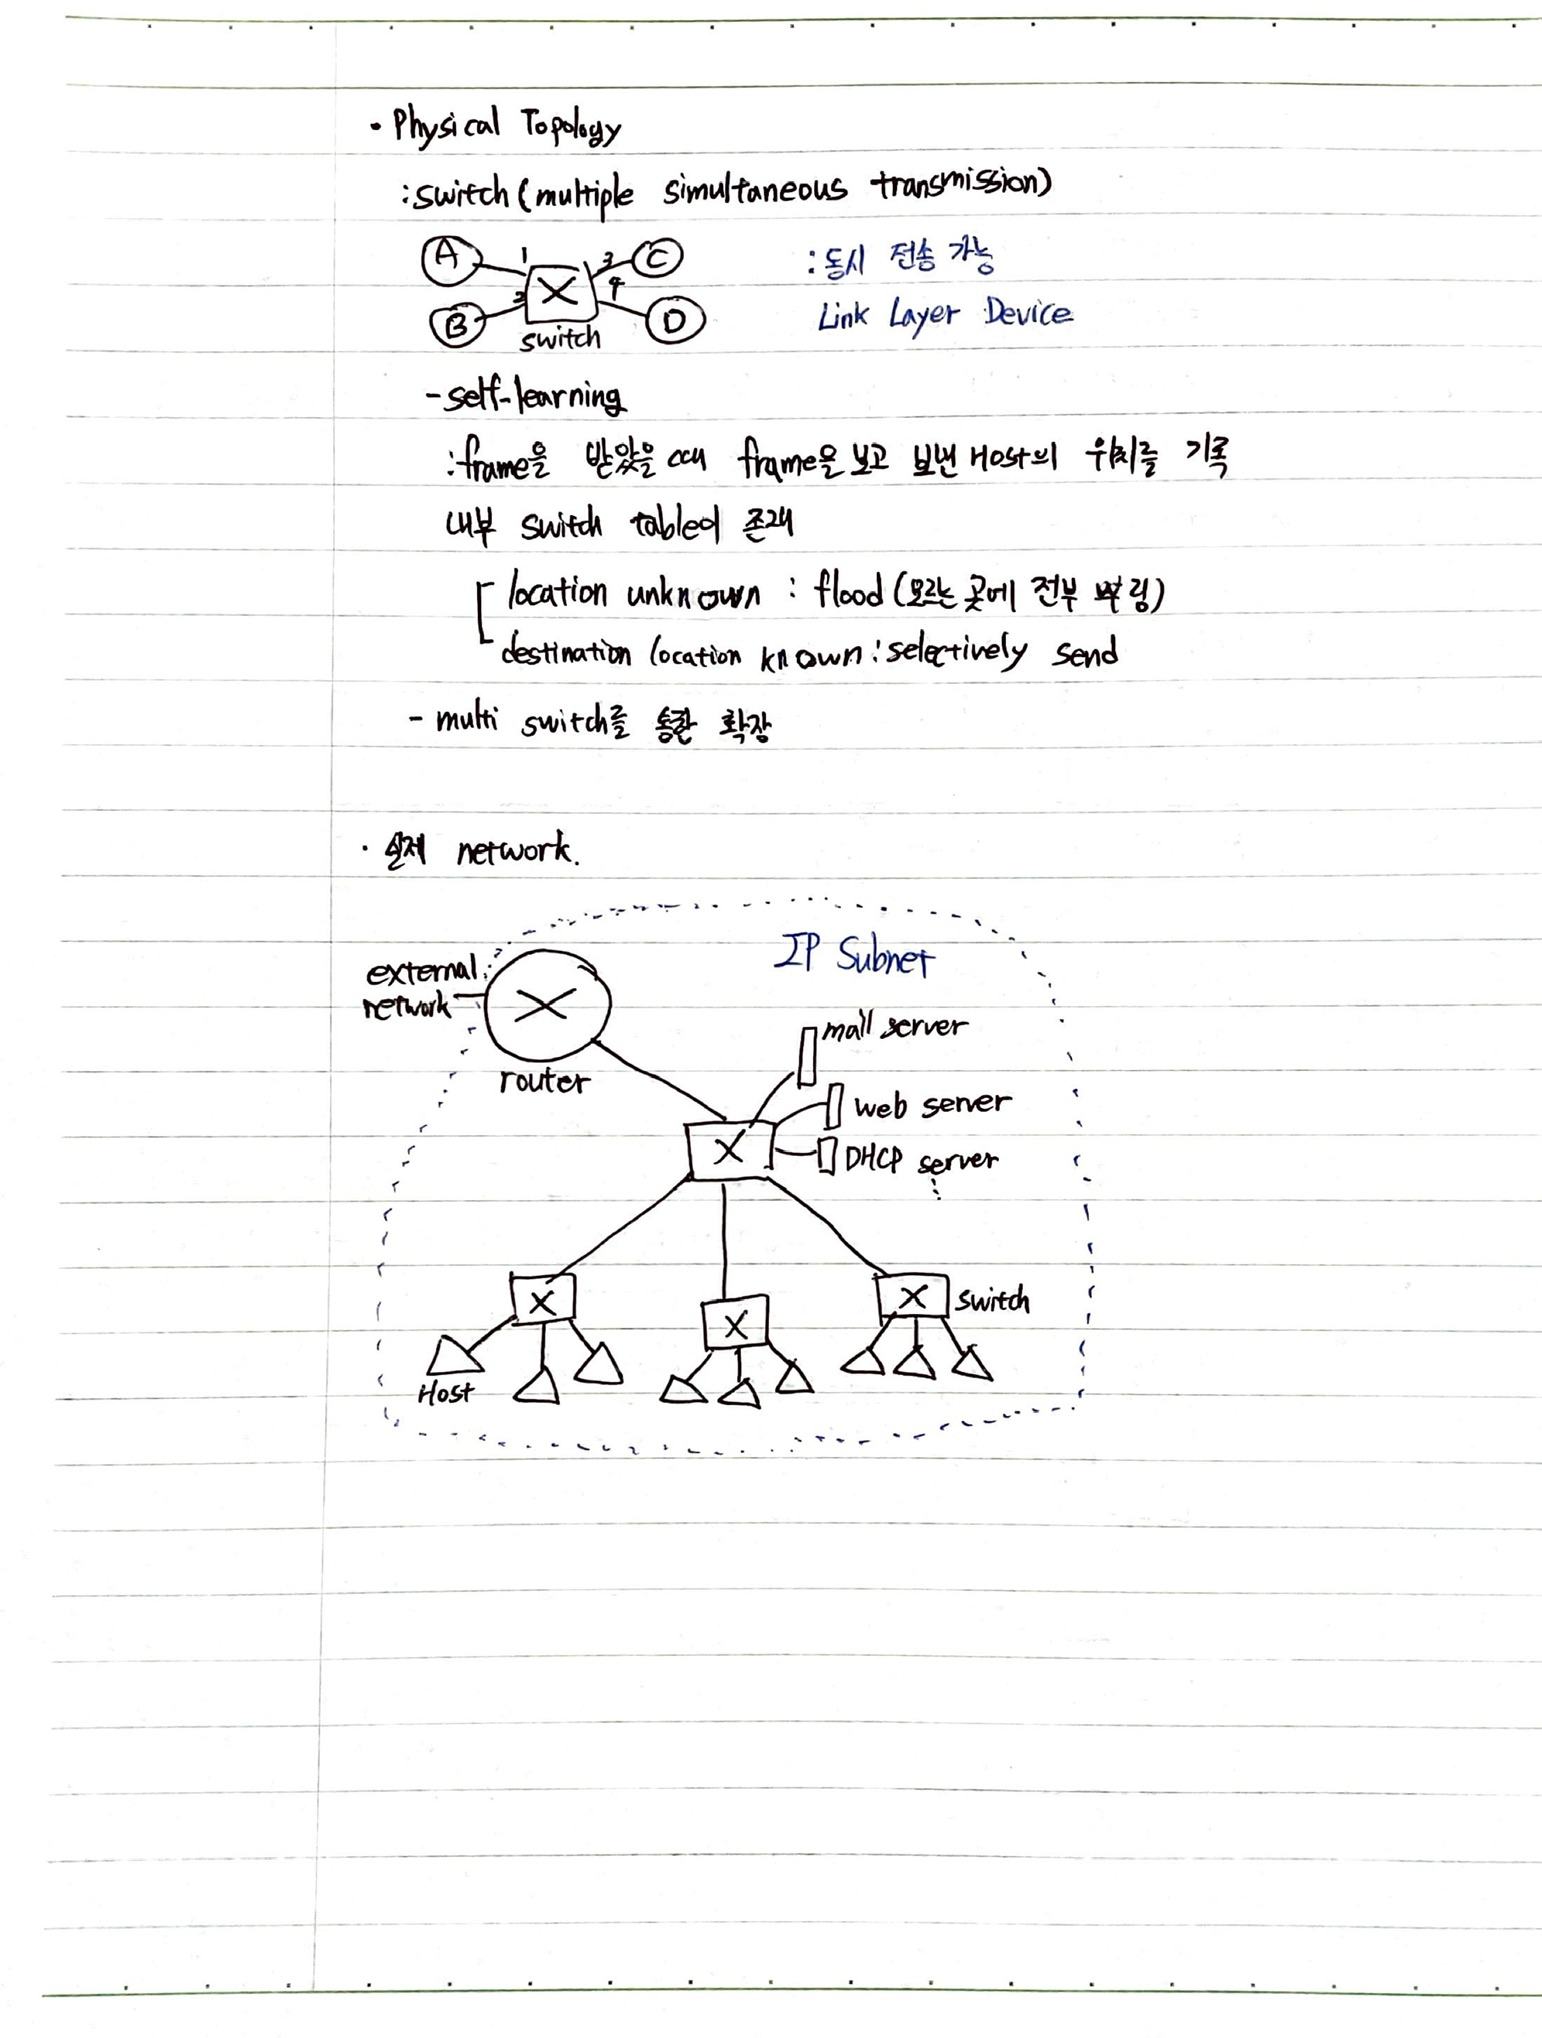 · Physical Topology
: switch (multiple simultaneous transmission)
A 1 3 C
: 동시 전송 가능
B 2 4 D
Link Layer Device
switch
- self-learning
: frame을 받았을 때 frame을 보고 보낸 Host의 위치를 기록
내부 switch table이 존재
location unknown : flood (모르는 곳에 전부 뿌림)
destination location known : selectively send
- multi switch를 통한 확장
· 실제 network.
IP Subnet
external
network
router
mail server
web server
DHCP server
⋮
switch
Host